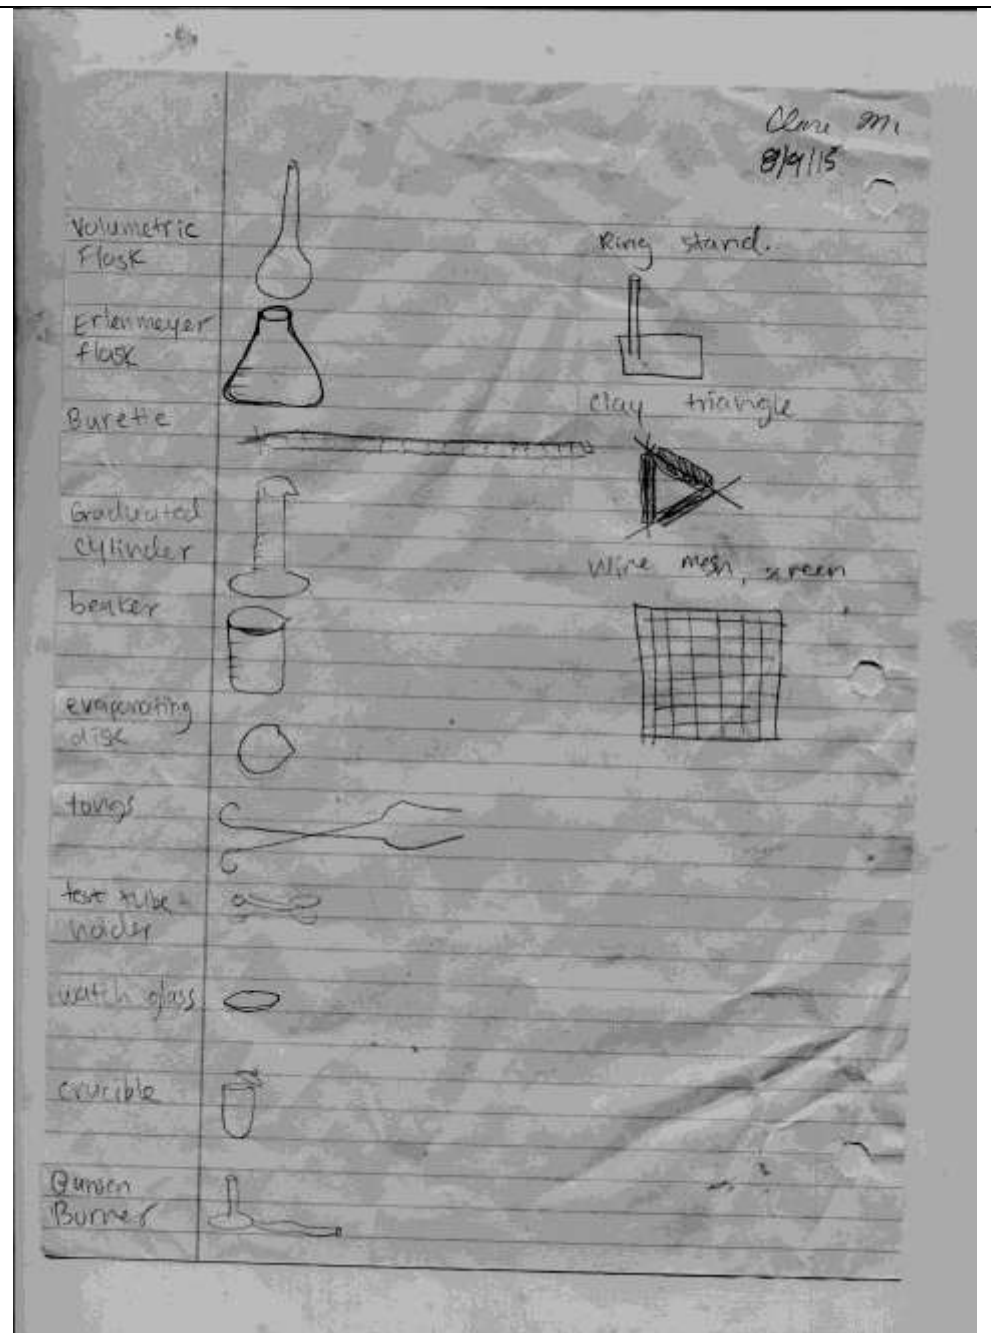 Clare M.
8/9/15
Volumetric
Flask
Erlenmeyer
flask
Burette
Graduated
cylinder
beaker
evaporating
disk
tongs
test tube
holder
watch glass
crucible
Bunsen
Burner
Ring stand.
clay triangle
Wire mesh, screen